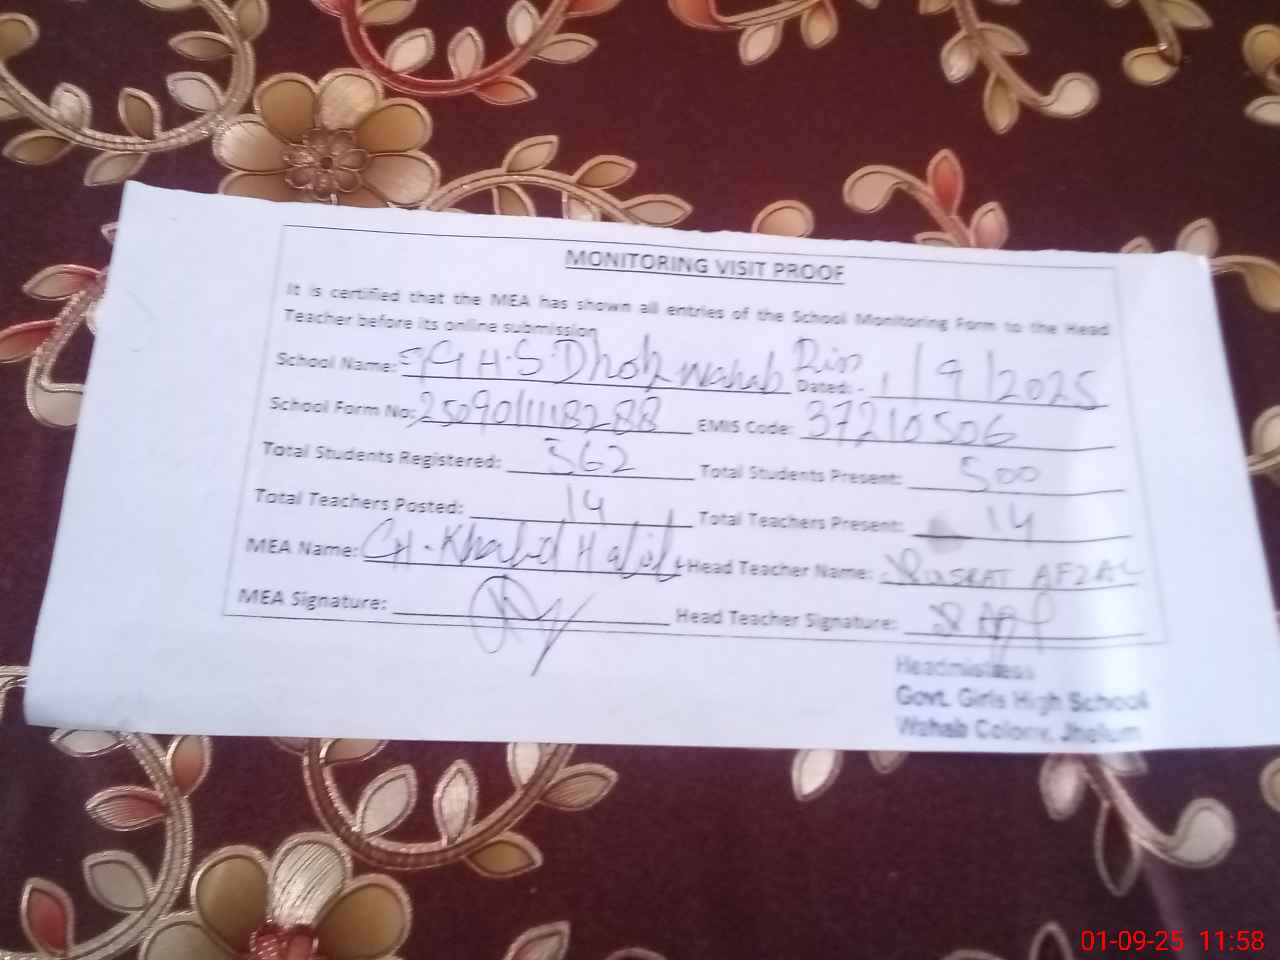 MONITORING VISIT PROOF
It is certified that the MEA has shown all entries of the School Monitoring Form to the Head
Teacher before its online submission
School Name: GGHS Dhok Wahab Din Dated:- 1/9/2025
School Form No: 2509011118288 EMIS Code: 37210506
Total Students Registered: 562 Total Students Present: 500
Total Teachers Posted: 14 Total Teachers Present: 14
MEA Name: CH. Khalid Head Teacher Name: AFZAL
MEA Signature: Head Teacher Signature:
Headmistress
Govt. Girls High School
Wahab Colony, Jhelum
01-09-25 11:58